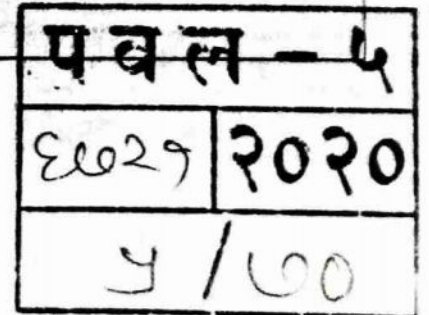 पवल - ५
६७२१ २०२०
५ / ७०